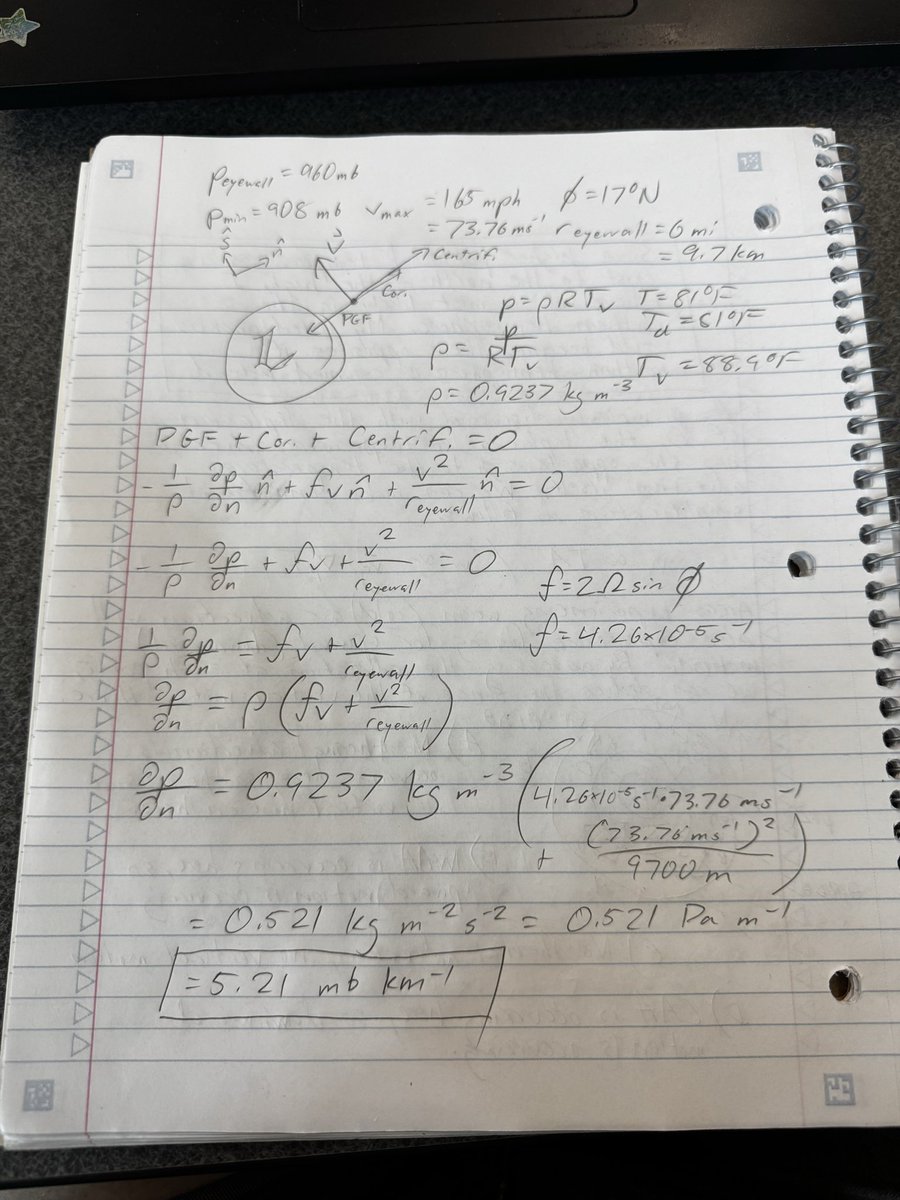 P_eyewall = 960 mb
P_min = 908 mb   V_max = 165 mph   ϕ = 17°N
= 73.76 ms⁻¹   r_eyewall = 6 mi
= 9.7 km
ŝ   n̂   v⃗   Centrif.
Cor.
PGF
L
p = ρRT_v   T = 81°F
T_d = 81°F
ρ = p/(RT_v)   T_v = 88.9°F
ρ = 0.9237 kg m⁻³
PGF + Cor. + Centrif. = 0
-1/ρ ∂p/∂n n̂ + fv n̂ + v²/r_eyewall n̂ = 0
-1/ρ ∂p/∂n + fv + v²/r_eyewall = 0
f = 2Ω sin ϕ
f = 4.26×10⁻⁵ s⁻¹
1/ρ ∂p/∂n = fv + v²/r_eyewall
∂p/∂n = ρ (fv + v²/r_eyewall)
∂p/∂n = 0.9237 kg m⁻³ (4.26×10⁻⁵ s⁻¹ · 73.76 ms⁻¹
+ (73.76 ms⁻¹)²/9700 m)
= 0.521 kg m⁻² s⁻² = 0.521 Pa m⁻¹
= 5.21 mb km⁻¹